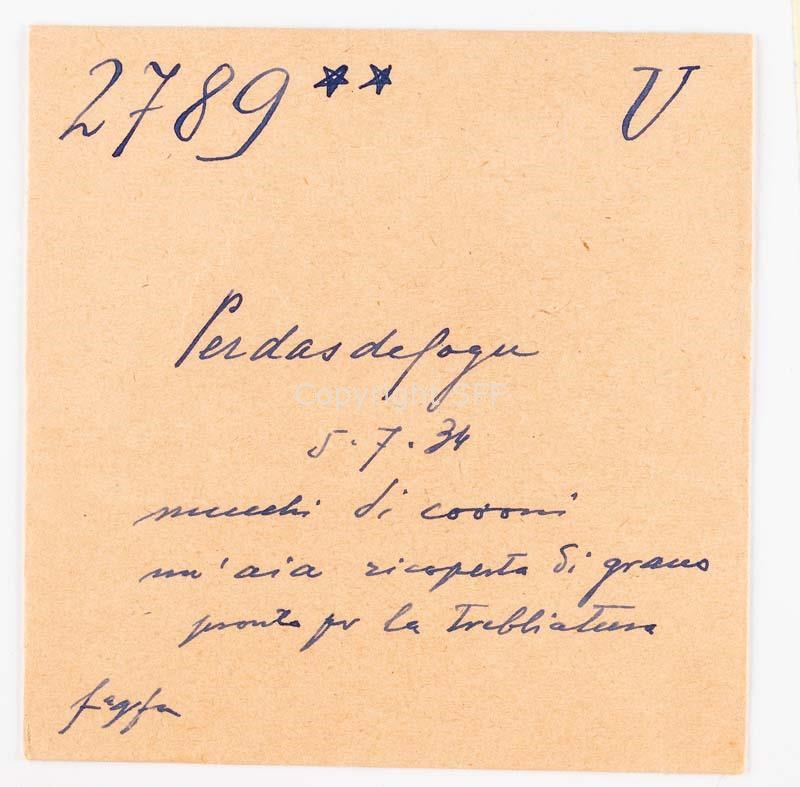 2789** V
Perdasdefogu
Copyright SFF
5.7.34
mucchi di covoni
un'aia ricoperta di grano
pronto per la trebbiatura